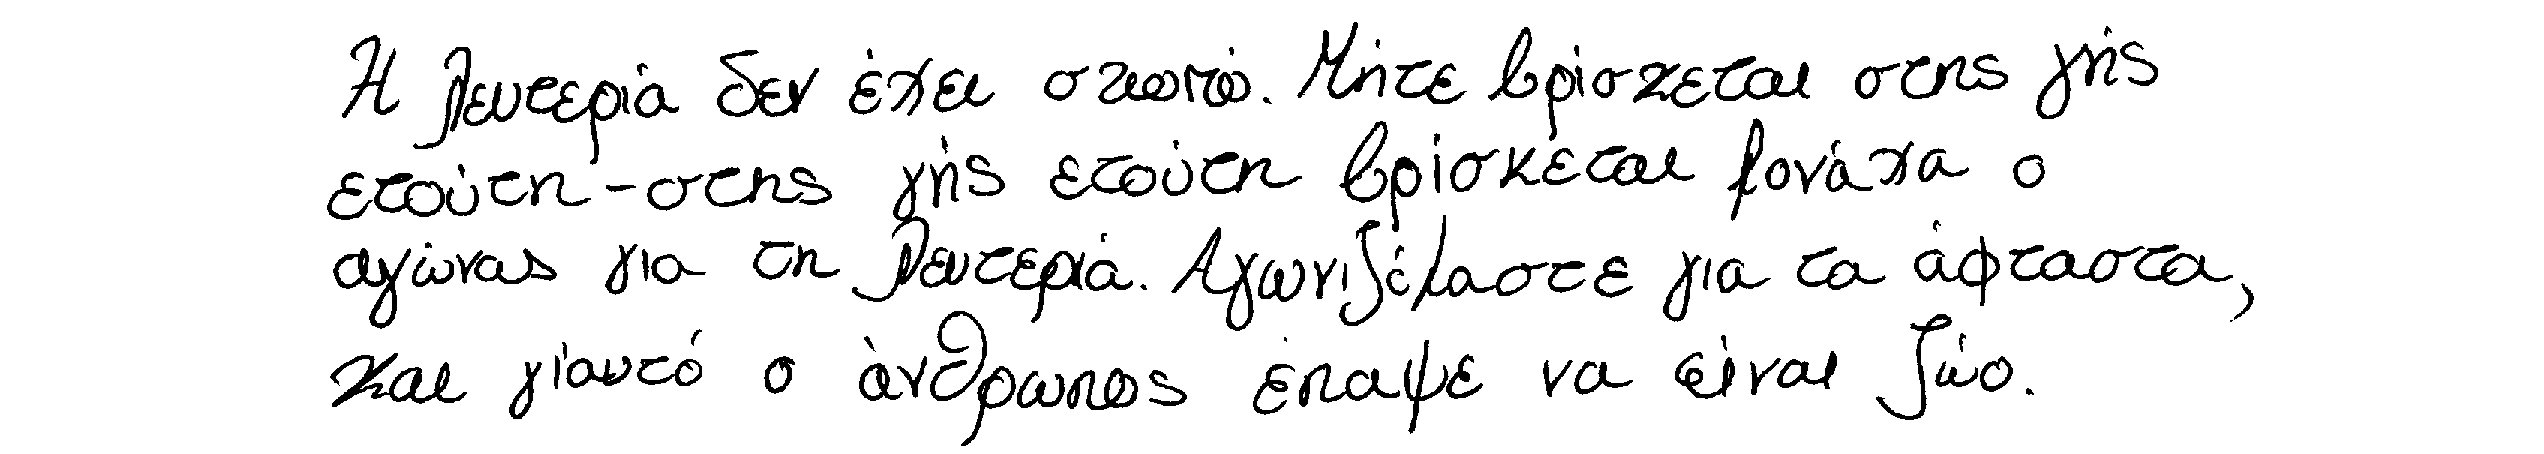 Η λευτεριά δεν έχει σκοπό. Μήτε βρίσκεται στης γής
ετούτη - στης γής ετούτη βρίσκεται μονάχα ο
αγώνας για τη λευτεριά. Αγωνιζόμαστε για τα άφταστα,
και γι'αυτό ο άνθρωπος έπαψε να είναι ζώο.